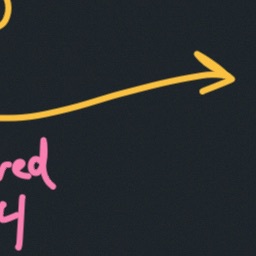 red
4